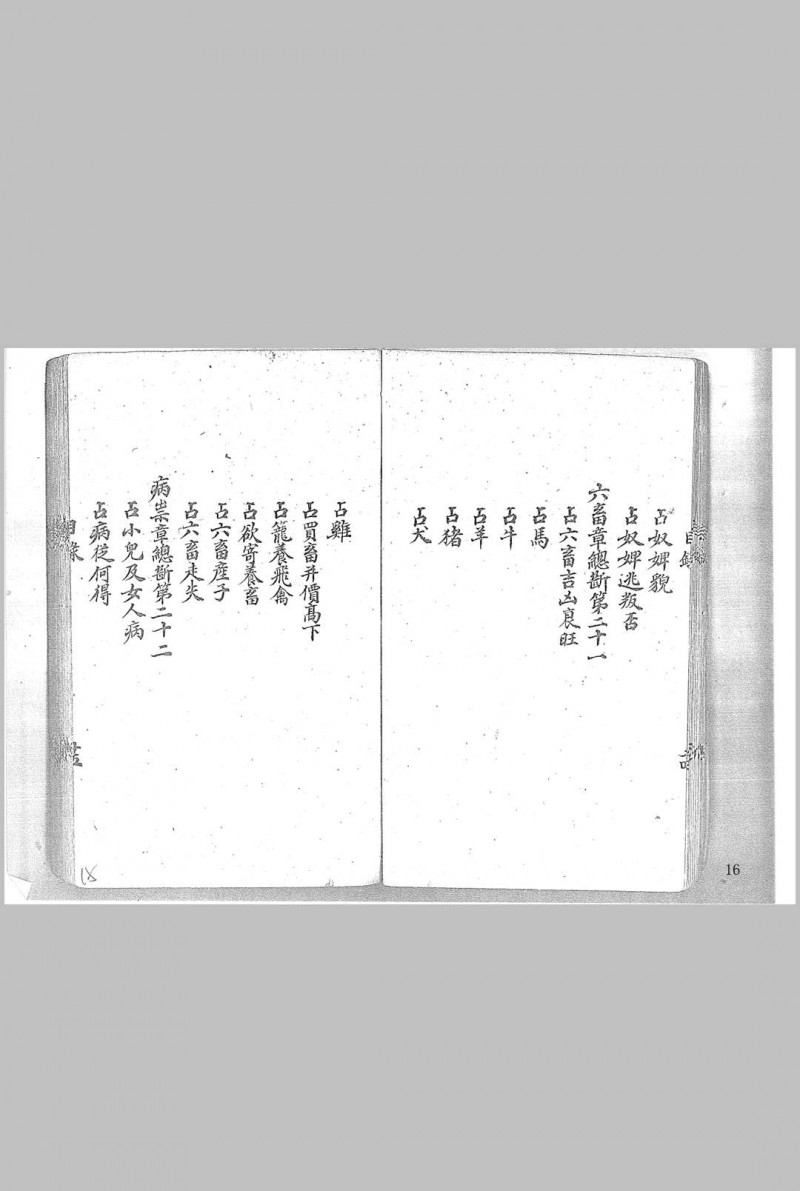 目錄
占奴婢貌
占奴婢逃叛否
六畜章總斷第二十一
占六畜吉凶衰旺
占馬
占牛
占羊
占猪
占犬
占雞
占買畜并價高下
占籠養飛禽
占欲寄養畜
占六畜產子
占六畜走失
病祟章總斷第二十二
占小兒及女人病
占病從何得
目錄
16
18